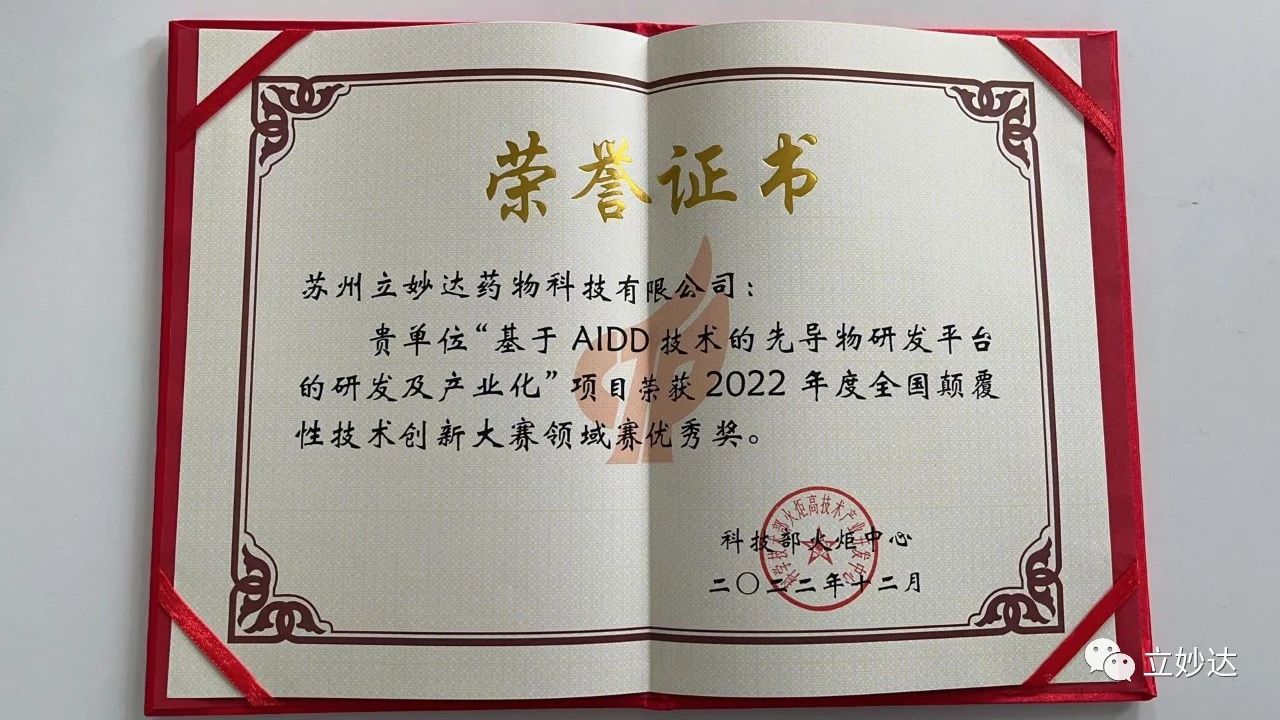 荣誉证书
苏州立妙达药物科技有限公司：
贵单位“基于 AIDD 技术的先导物研发平台
的研发及产业化”项目荣获 2022 年度全国颠覆
性技术创新大赛领域赛优秀奖。
科学技术部火炬高技术产业开发中心
科技部火炬中心
二〇二二年十二月
立妙达